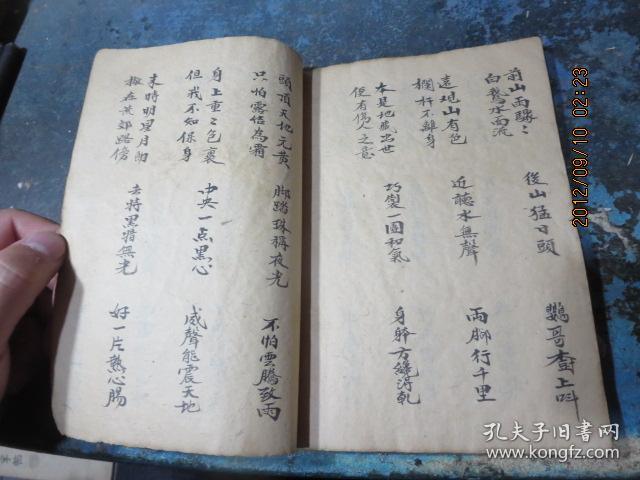 前山雨濛々
後山猛日頭
鸚哥樹上叫
白鵝水面流
遠觀山有色
近聽水無聲
兩脚行千里
欄杆不離身
本是地藏出世
巧製一團和氣
身幹方纔浔乾
便有傷人之意
頭頂天地元黄
脚踏珠稱夜光
不怕雲騰致雨
只怕露结為霜
身上重々包裹
中央一点黑心
威聲能震天地
但我不知保身
来時明星月朗
去時黑暗無光
好一片熱心腸
撇在荒郊路傍
2012/09/10 02:23
孔夫子旧書网
book.kongfz.com